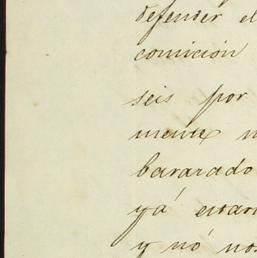 defender el
comición
seis por
mente n
bararado
yá estar
y nó nos